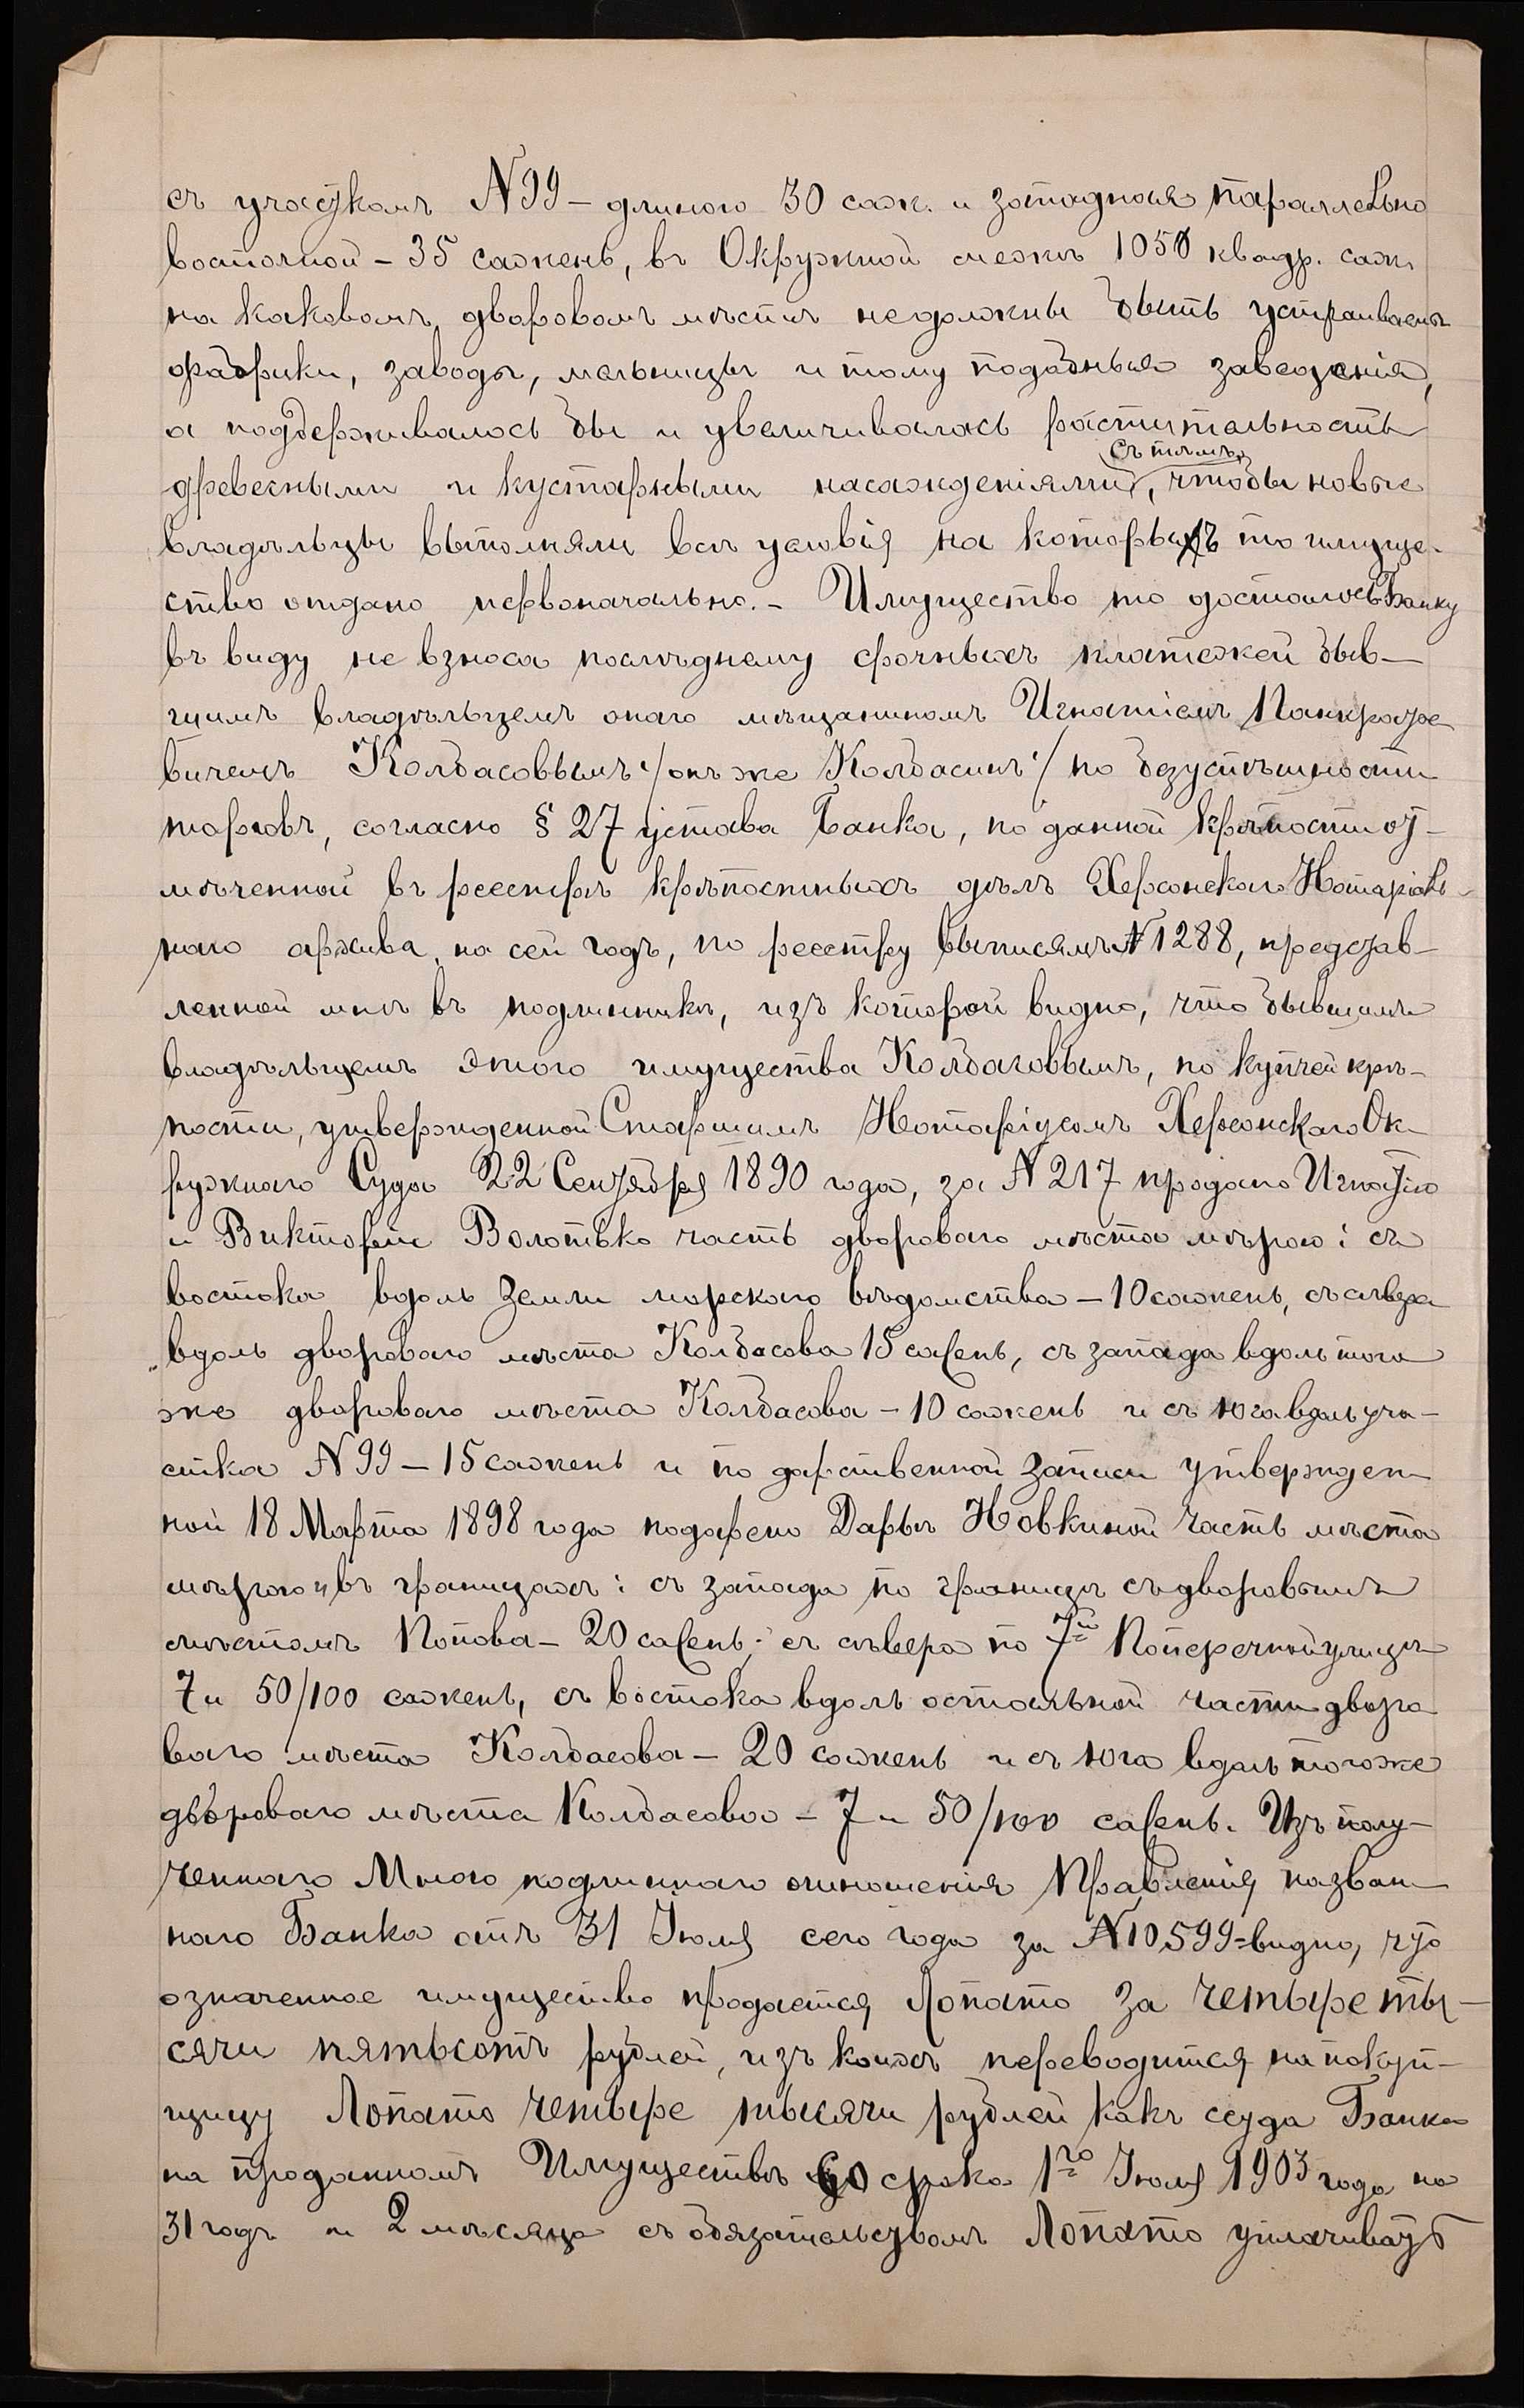 съ участкомъ N 99 – длиною 30 саж. и западная параллельно
восточной – 35 сажень, въ Окружной межѣ 1050 квадр. саж.
на каковомъ дворовомъ мѣстѣ недолжны быть устраиваемы
фабрики, заводы, мельницы и тому подобныя заведенія,
а поддерживалось бы и увеличивалась растительность
съ тѣмъ,
древесными и кустарными насажденіями, чтобы новые
владѣльцы выполняли всѣ условія на которыхъ то имуще-
ство отдано первоначально. – Имущество то досталось Банку
въ виду не взноса послѣднему срочныхъ платежей быв–
шимъ владѣльцемъ онаго мѣщаниномъ Игнатіемъ Панкратье
вичемъ Колбасовымъ /онъ же Колбасинъ/ по безуспѣшности
торговъ, согласно § 27 устава Банка, по данной крѣпости от–
мѣченной въ реестрѣ крѣпостныхъ дѣлъ Херсонскаго Нотаріаль-
наго архива, на сей годъ, по реестру выписямъ N 1288, представ–
ленной мнѣ въ подлинникѣ, изъ которой видно, что бывшимъ
владѣльцемъ этого имущества Колбасовымъ, по купчей крѣ–
пости, утвержденной Старшимъ Нотаріусомъ Херсонскаго Ок–
ружнаго Суда 22 Сентября 1890 года, за N 217 продано Игнатію
и Викторіи Волотько часть двороваго мѣста мѣрою: съ
востока вдоль земли морского вѣдомства – 10 сажень, съ сѣвера
вдоль двороваго мѣста Колбасова 15 сажень, съ запада вдоль того
же двороваго мѣста Колбасова – 10 сажень и съ юга вдоль уча–
стка N 99 – 15 сажень и по дарственной записи утвержден–
ной 18 Марта 1898 года подарено Дарьѣ Новкиной часть мѣста
мѣрою и въ границахъ: съ запада по границѣ съ дворовымъ
мѣстомъ Попова – 20 сажень; съ сѣвера по 7й Поперечной улицѣ
7 и 50/100 сажень, съ востока вдоль остальной части дворо
ваго мѣста Колбасова – 20 сажень и съ юга вдоль тогоже
двороваго мѣста Колбасова – 7 и 50/100 сажень. Изъ полу–
ченнаго Мною подлиннаго отношенія Правленія назван–
наго Банка отъ 31 Іюля сего года за N 10599 – видно, что
означенное имущество продается Лопато за четыре ты–
сячи пятьсотъ рублей, изъ коихъ переводится на покуп–
щицу Лопато четыре тысячи рублей какъ ссуда Банка
на проданномъ Имуществѣ со срока 1го Іюля 1903 года на
31 годъ и 2 мѣсяца съ обязательствомъ Лопато уплачивать